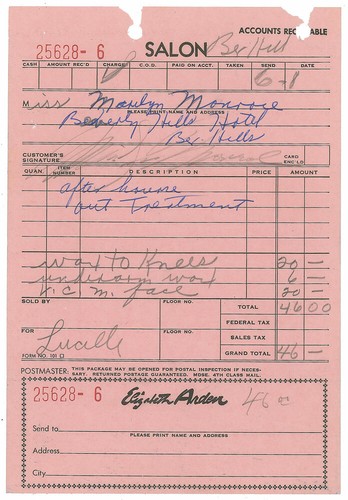 ACCOUNTS REC ABLE
25628-6 SALON Bev Hill
CASH AMOUNT REC'D CHARGE C.O.D. PAID ON ACCT. TAKEN SEND DATE
6-1
Miss Marilyn Monroe
PLEASE PRINT NAME AND ADDRESS
Beverly Hills Hotel
Bev. Hills
CUSTOMER'S SIGNATURE CARD ENC'LD
QUAN. ITEM NUMBER DESCRIPTION PRICE AMOUNT
after house
out Treatment
wax to Knees 20 —
underarm wax 6 —
V.C.M. face 20 —
SOLD BY FLOOR NO. TOTAL 46 00
FEDERAL TAX
FOR FLOOR NO. SALES TAX
Lucille
FORM NO. 101 GRAND TOTAL 46 —
POSTMASTER: THIS PACKAGE MAY BE OPENED FOR POSTAL INSPECTION IF NECES-
SARY. RETURNED POSTAGE GUARANTEED. MDSE. 4TH CLASS MAIL.
25628-6 Elizabeth Arden 46 00
Send to
PLEASE PRINT NAME AND ADDRESS
Address
City